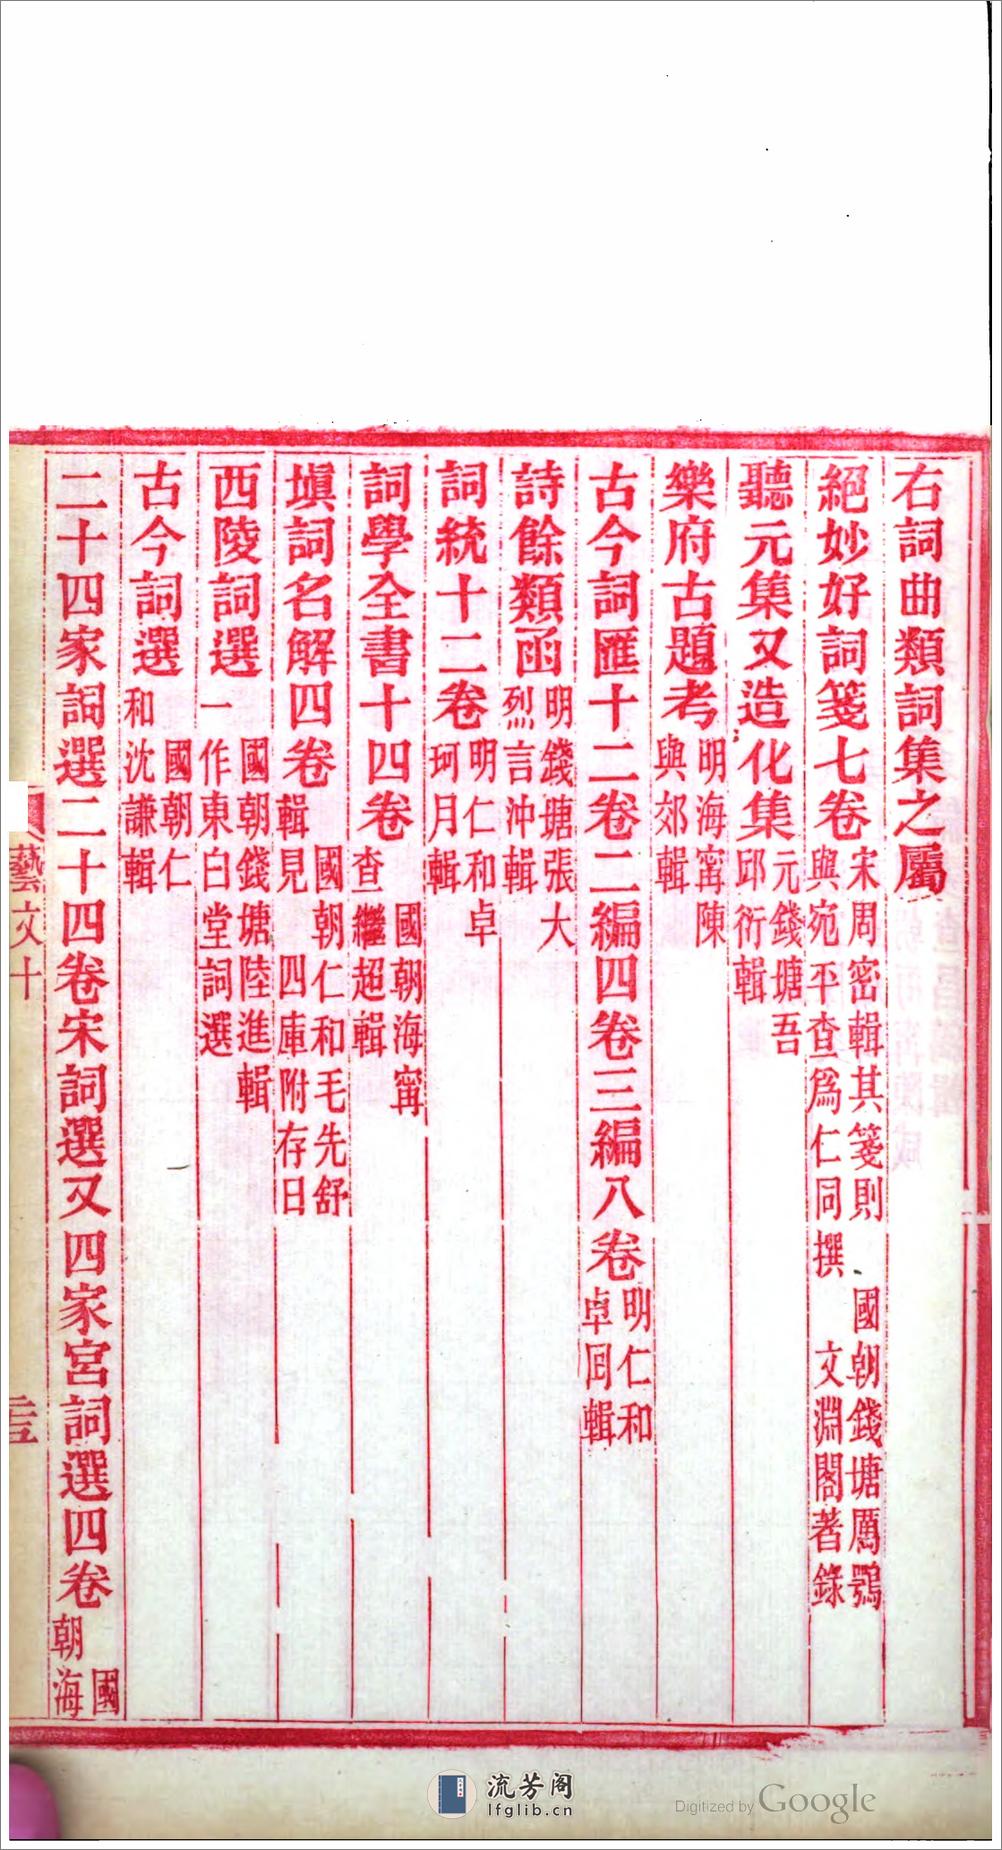 右詞曲類詞集之屬
絕妙好詞箋七卷宋周密輯其箋則 國朝錢塘厲鶚與宛平查爲仁同撰 文淵閣著錄
聽元集又造化集元錢塘吾邱衍輯
樂府古題考明海甯陳與郊輯
古今詞匯十二卷二編四卷三編八卷明仁和卓回輯
詩餘類函明錢塘張大烈言沖輯
詞統十二卷明仁和卓珂月輯
詞學全書十四卷國朝海甯查繼超輯
塡詞名解四卷國朝仁和毛先舒輯見四庫附存目
西陵詞選國朝錢塘陸進輯一作東白堂詞選
古今詞選國朝仁和沈謙輯
二十四家詞選二十四卷宋詞選又四家宮詞選四卷國朝海
藝文十
流芳阁
lfglib.cn
Digitized by Google